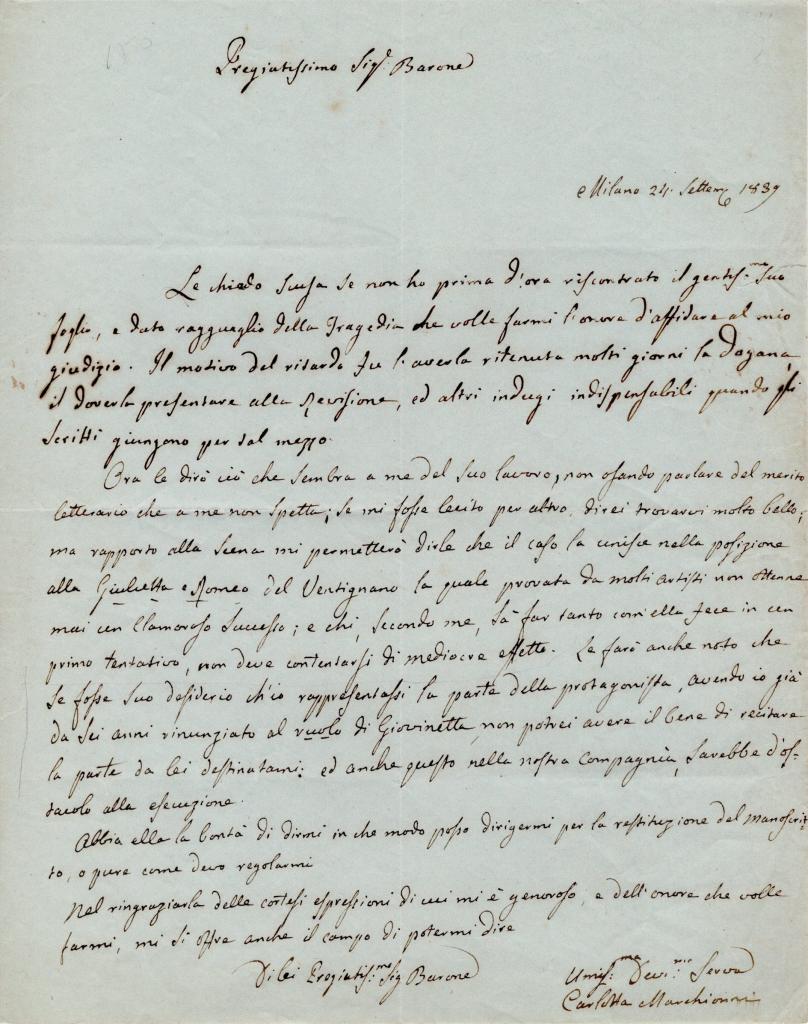 Pregiatissimo Sig.r Barone
Milano 24. Settem. 1839
Le chiedo scusa se non ho prima d'ora riscontrato il gentis.mo suo
foglio, e dato ragguaglio della Tragedia che volle farmi l'onore d'affidare al mio
giudizio. Il motivo del ritardo fu l'averla ritenuta molti giorni la Dogana,
il doverla presentare alla Revisione, ed altri indugi indispensabili quando gli
scritti giungono per tal mezzo.
Ora le dirò ciò che sembra a me del suo lavoro, non osando parlare del merito
letterario che a me non spetta; se mi fosse lecito per altro, direi trovarvi molto bello;
ma rapporto alla Scena mi permetterà dirle che il caso la unisce nella posizione
alla Giulietta e Romeo del Ventignano la quale provata da molti artisti non ottenne
mai un clamoroso successo; e chi, secondo me, sà far tanto com'ella fece in un
primo tentativo, non deve contentarsi di mediocre effetto. Le farò anche noto che
se fosse suo desiderio ch'io rappresentassi la parte della protagonista, avendo io già
da sei anni rinunziato al ruolo di Giovinetta, non potrei avere il bene di recitare
la parte da lei destinatami; ed anche questo nella nostra Compagnia, sarebbe d'os-
tacolo alla esecuzione.
Abbia ella la bontà di dirmi in che modo posso dirigermi per la restituzione del manoscrit-
to, o pure come devo regolarmi
Nel ringraziarla delle cortesi espressioni di cui mi è generoso, e dell'onore che volle
farmi, mi si offre anche il campo di potermi dire
Di lei Pregiatis.mo Sig Barone
Umis.ma Dev.ma Serva
Carlotta Marchionni